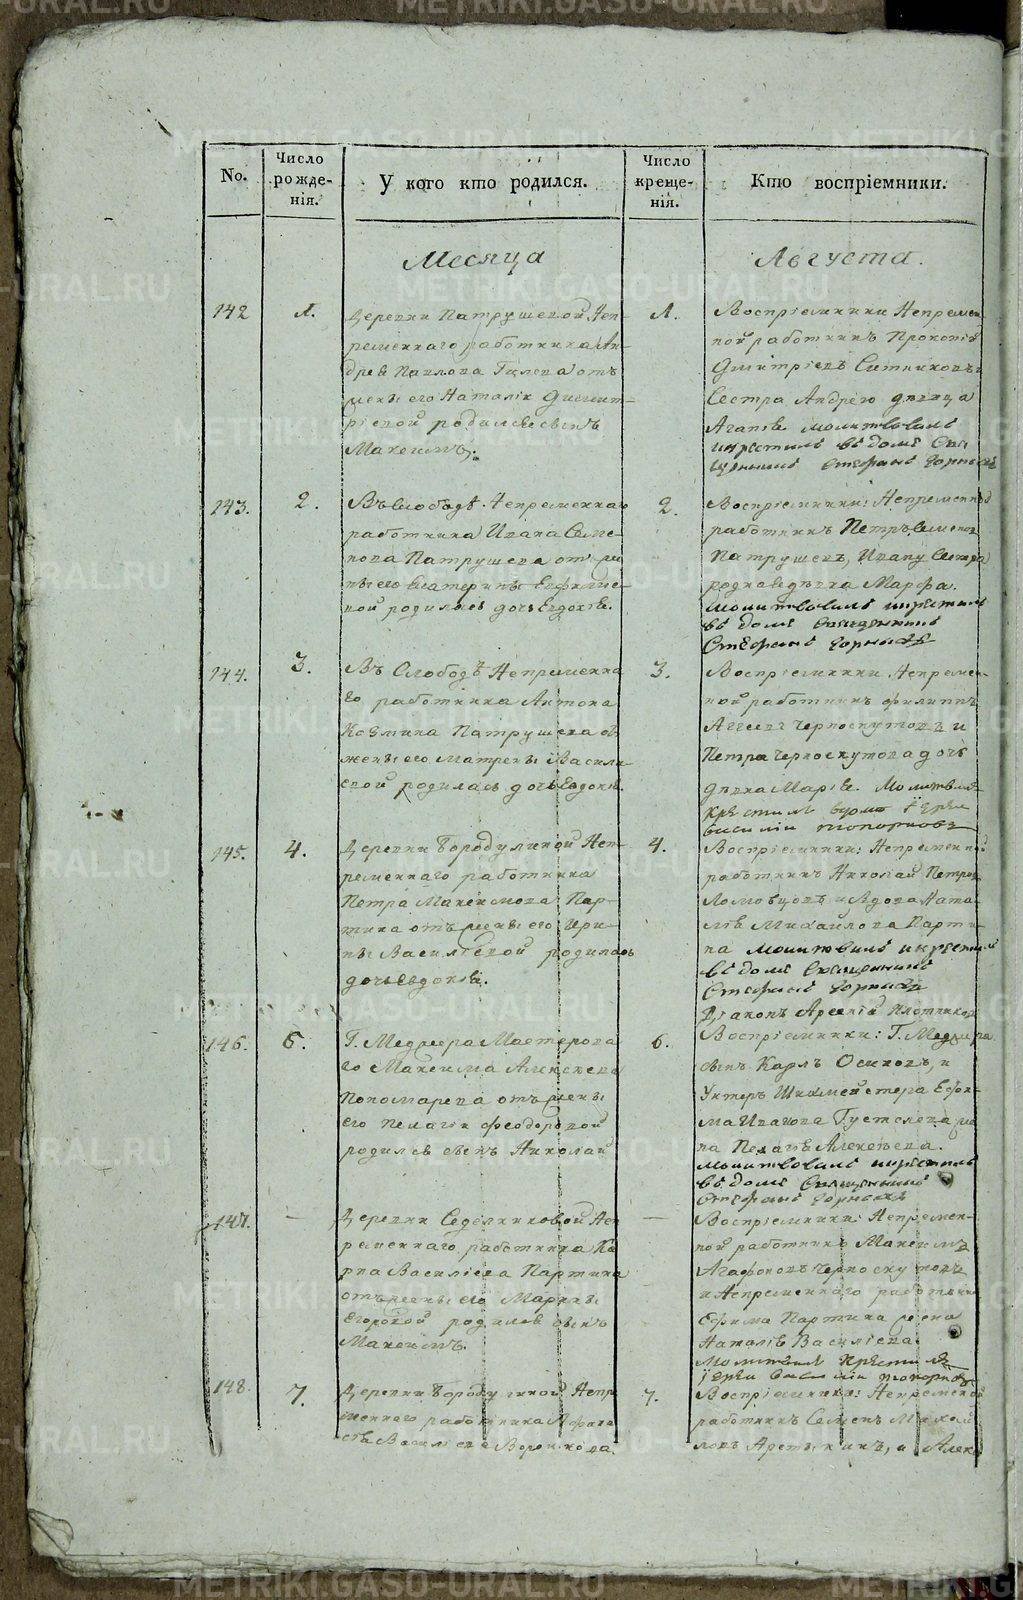 No.
Число рожде- нія.
У кого кто родился.
Число креще- нія.
Кто воспріемники.
Месяца
Августа.
142
1.
Деревни Патрушевой Неп-
ременнаго работника Ан-
дрея Павлова Гилева отъ
жены его Наталіи Димит-
ріевой родился сынъ
Максимъ.
1.
Воспріемники Непремен-
ной работникъ Прокопій
Димитріевъ Ситниковъ и
Сестра Андрею девица
Агапія молитвовалъ
и крестилъ въ доме Свя-
щенникъ Стефанъ Горныхъ
143.
2.
Въ Слободѣ Непременнаго
работника Ивана Семе-
нова Патрушева отъ же-
ны его Екатерины Евфимие-
вой родилась дочь Евдокія.
2.
Воспріемники: Непременной
работникъ Петръ Семеновъ
Патрушевъ, Ивану Сестра
родная девка Марфа.
молитвовалъ и крестилъ
въ доме Священникъ
Стефанъ Горныхъ
144.
3.
Въ Слободѣ Непременна-
го работника Антона
Козмина Патрушева отъ
жены его Матрены Васили-
евой родилась дочь Евдокія.
3.
Воспріемники Непремен-
ной работникъ Филиппъ
Аггеевъ Черноскутовъ и
Петра Черноскутова дочь
девка Марія. Молитвов.
крестилъ въ доме Іерей
Василіи Топорковъ
145.
4.
Деревни Бородулиной Неп-
ременнаго работника
Петра Максимова Пар-
тина отъ жены его Ири-
ны Васильевой родилась
дочь Евдокія.
4.
Воспріемники: Непременной
работникъ Николай Петровъ
Ломовцовъ и Вдова Ната-
лія Михайлова Парти-
на молитвовалъ и крестилъ
въ доме Священникъ
Стефанъ Горныхъ
Діаконъ Арсеній Плотниковъ
146.
6.
Г. Меджера Мастерова-
го Максима Алексеева
Пономарева отъ жены
его Пелагіи Феодоровой
родился сынъ Николай
6.
Воспріемники: Г. Меджера
сынъ Карлъ Осиповъ, и
Унтеръ Шихмейстера Ефи-
ма Иванова Густолева же-
на Пелагія Алексеева.
молитвовалъ и крестилъ
въ доме Священникъ
Стефанъ Горныхъ
147.
—
Деревни Седельниковой Неп-
ременнаго работника Ка-
рпа Василіева Партина
отъ жены его Марины
Егоровой родился сынъ
Максимъ.
—
Воспріемники: Непремен-
ной работникъ Максимъ
Агафоновъ Черноскутовъ
и Непременнаго работника
Ефима Партина жена
Наталія Василіева.
Молитвов. крестилъ
Іерей Василіи Топорковъ
148.
7.
Деревни Бородулиной Непре-
меннаго работника Афана-
сія Васильева Воронкова,
7.
Воспріемники: Непременной
работникъ Семенъ Михай-
ловъ и Алек-
METRIKI.GASO-URAL.RU